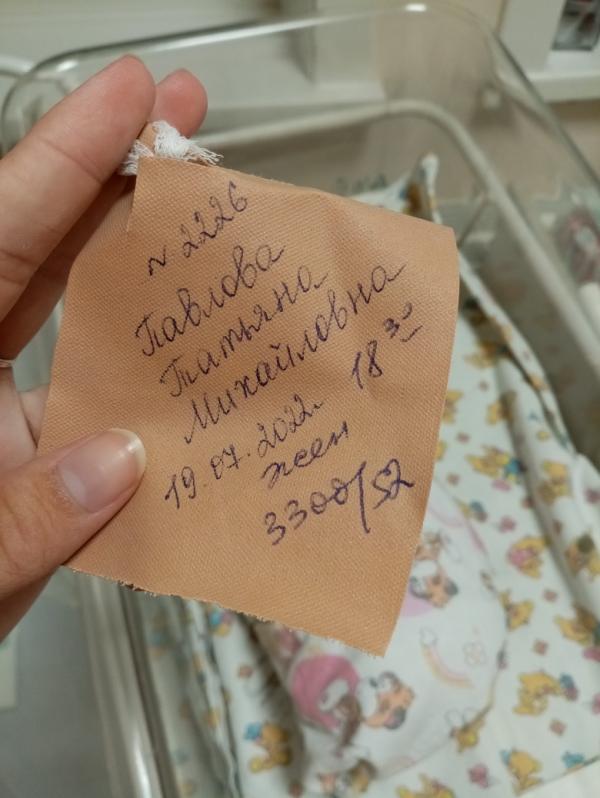 N 2226
Павлова
Татьяна
Михайловна
19.07.2022г 18 30
жен
3300/52